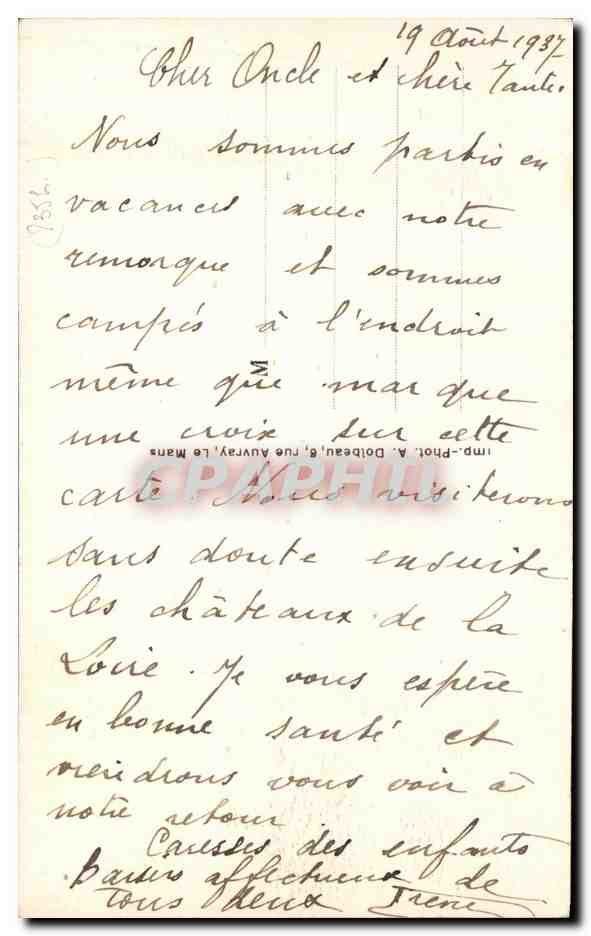 19 Août 1937
Cher Oncle et chère Tante.
Nous sommes partis en
vacances avec notre
remorque et sommes
campés à l'endroit
même que marque
une croix sur cette
carte. Nous visiterons
sans doute ensuite
les châteaux de la
Loire. Je vous espère
en bonne santé et
viendrons vous voir à
notre retour
Caresses des enfants
Baisers affectueux de
tous deux Irène
M
Imp.-Phot. A. Dolbeau, 6, rue Auvray, Le Mans
CPAPHIL